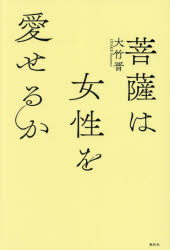 菩薩は
大竹晋
女性を
愛せるか